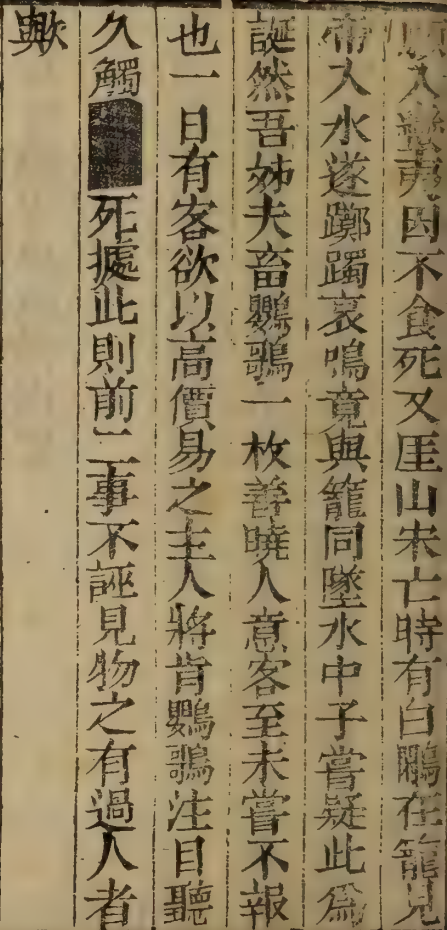 入蠻夷因不食死又厓山宋亡時有白鷴在籠見
帝入水遂躑躅哀鳴竟與籠同墜水中子嘗疑此爲
誕然吾姊夫畜鸚䳗一枚善曉人意客至未嘗不報
也一日有客欲以高價易之主人將肯鸚䳗注目聽
久觸死據此則前二事不誣見物之有過人者
歟